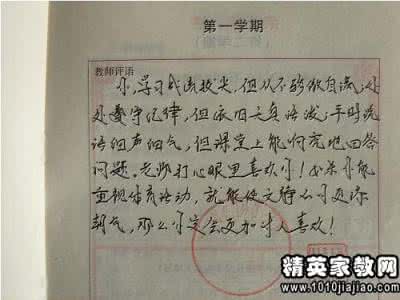 第一学期
教师评语
你,学习成绩拔尖,但从不骄傲自满;处
处遵守纪律,但依旧天真活泼;平时说
话细声细气,但课堂上能响亮地回答
问题。老师打心眼里喜欢你!如果你能
重视体育活动,就能使文静的你更添
朝气,那么你定会更加讨人喜欢!
精英家教网
www.1010jiajiao.com